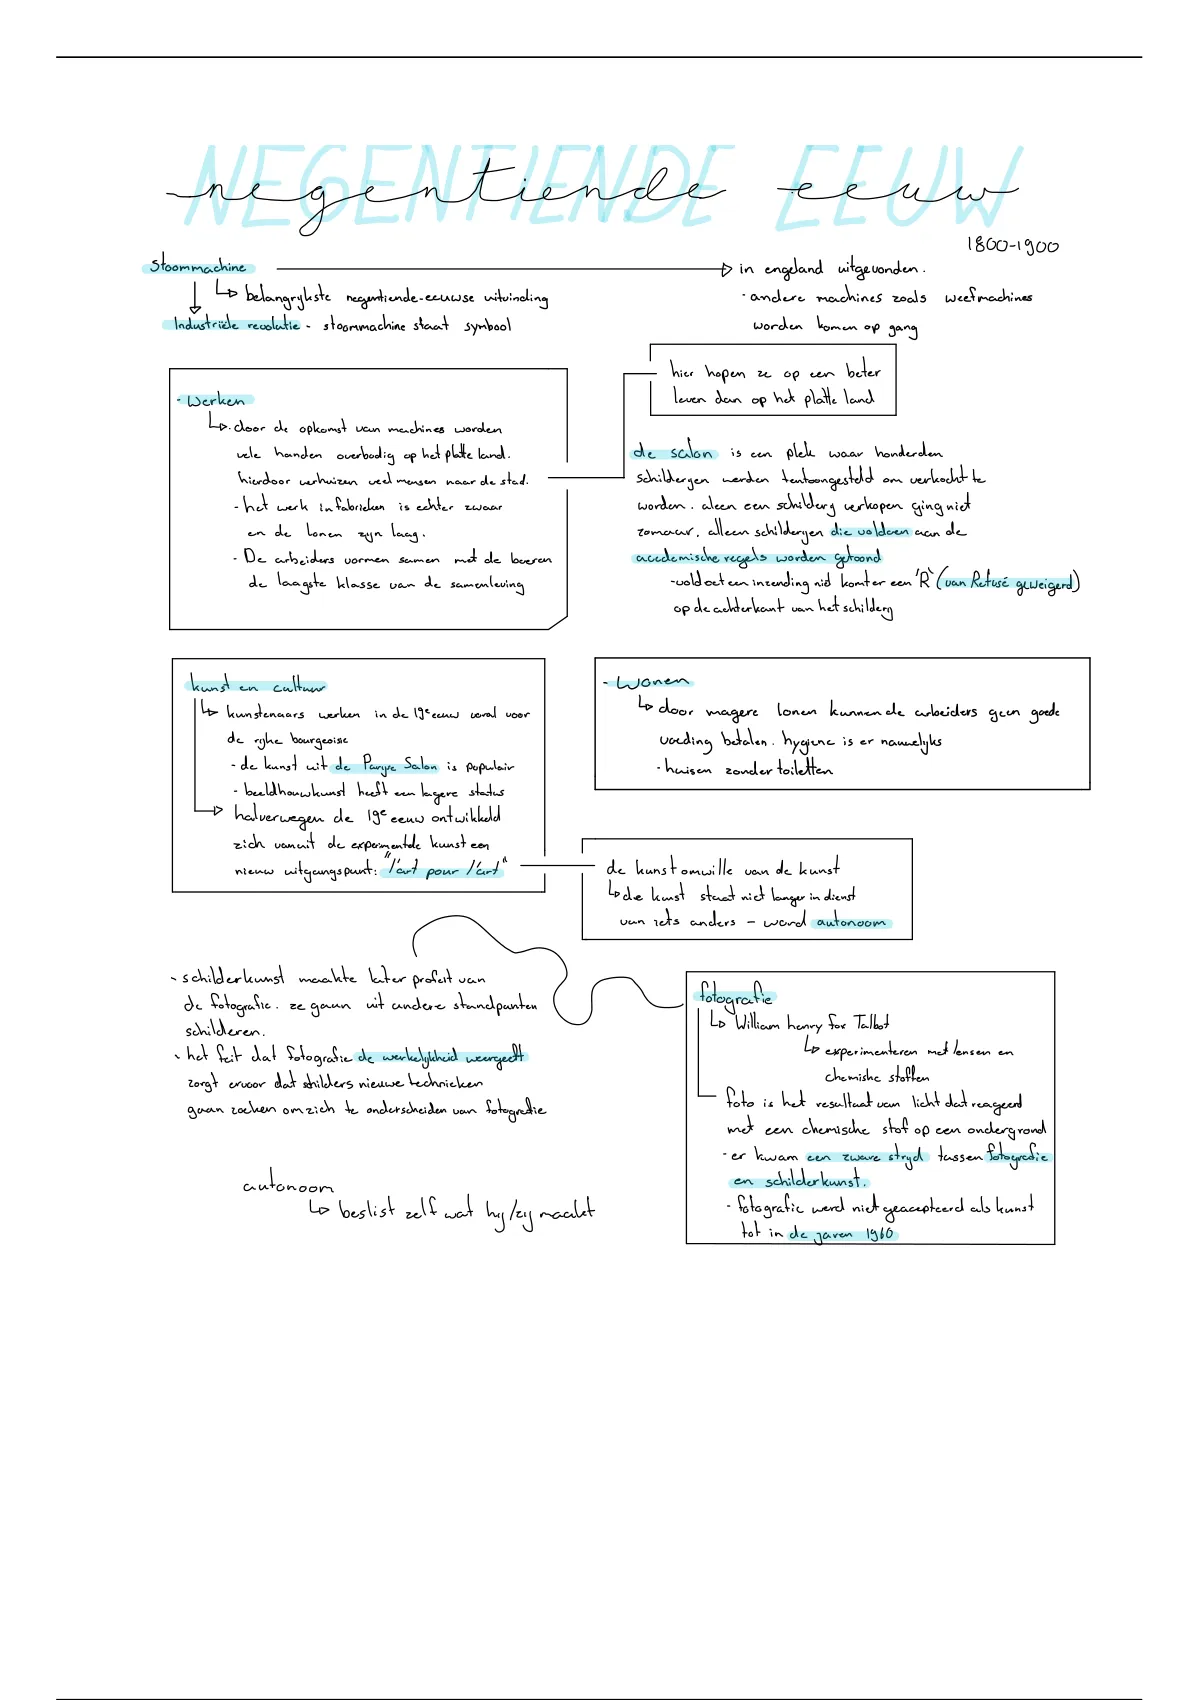 NEGENTIENDE EEUW
negentiende eeuw
1800-1900
Stoommachine
in engeland uitgevonden.
belangrijkste negentiende-eeuwse uitvinding
· andere machines zoals weefmachines
worden komen op gang
Industriële revolutie - stoommachine staat symbool
hier hopen ze op een beter
leven dan op het platte land
- Werken
· door de opkomst van machines worden
vele handen overbodig op het platte land.
hierdoor verhuizen veel mensen naar de stad.
- het werk in fabrieken is echter zwaar
en de lonen zijn laag.
- De arbeiders vormen samen met de boeren
de laagste klasse van de samenleving
de salon is een plek waar honderden
schilderijen werden tentoongesteld om verkocht te
worden. aleen een schilderij verkopen ging niet
zomaar, alleen schilderijen die voldoen aan de
academische regels worden getoond
- voldoet een inzending niet komt er een 'R' (van Refusé geweigerd)
op de achterkant van het schilderij
kunst en cultuur
kunstenaars werken in de 19e eeuw veral voor
de rijke bourgeoisie
- de kunst uit de Parijse Salon is populair
- beeldhouwkunst heeft een lagere status
halverwegen de 19e eeuw ontwikkeld
zich vanuit de experimentele kunst een
nieuw uitgangspunt: "l'art pour l'art"
- Wonen
door magere lonen kunnen de arbeiders geen goede
voeding betalen. hygiene is er nauwelijks
· huisen zonder toiletten
de kunst omwille van de kunst
de kunst staat niet langer in dienst
van iets anders - word autonoom
- schilderkunst maakte later profeit van
de fotografie. ze gaan uit andere standpunten
schilderen.
- het feit dat fotografie de werkelijkheid weergeeft
zorgt ervoor dat shilders nieuwe technieken
gaan zoeken om zich te onderscheiden van fotografie
autonoom
beslist zelf wat hij/zij maakt
fotografie
William henry fox Talbot
experimenteren met lensen en
chemishe stoffen
foto is het resultaat van licht dat reageerd
met een chemische stof op een ondergrond
- er kwam een zware strijd tussen fotografie
en schilderkunst.
- fotografie werd niet geaccepteerd als kunst
tot in de jaren 1960